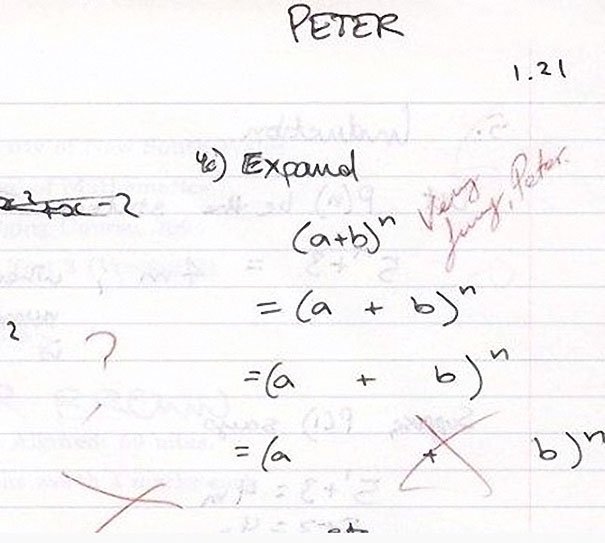 PETER
1.21
4c) Expand
(a+b)^n
Very funny, Peter.
= (a + b)^n
2
?
= (a + b)^n
= (a + b)^n